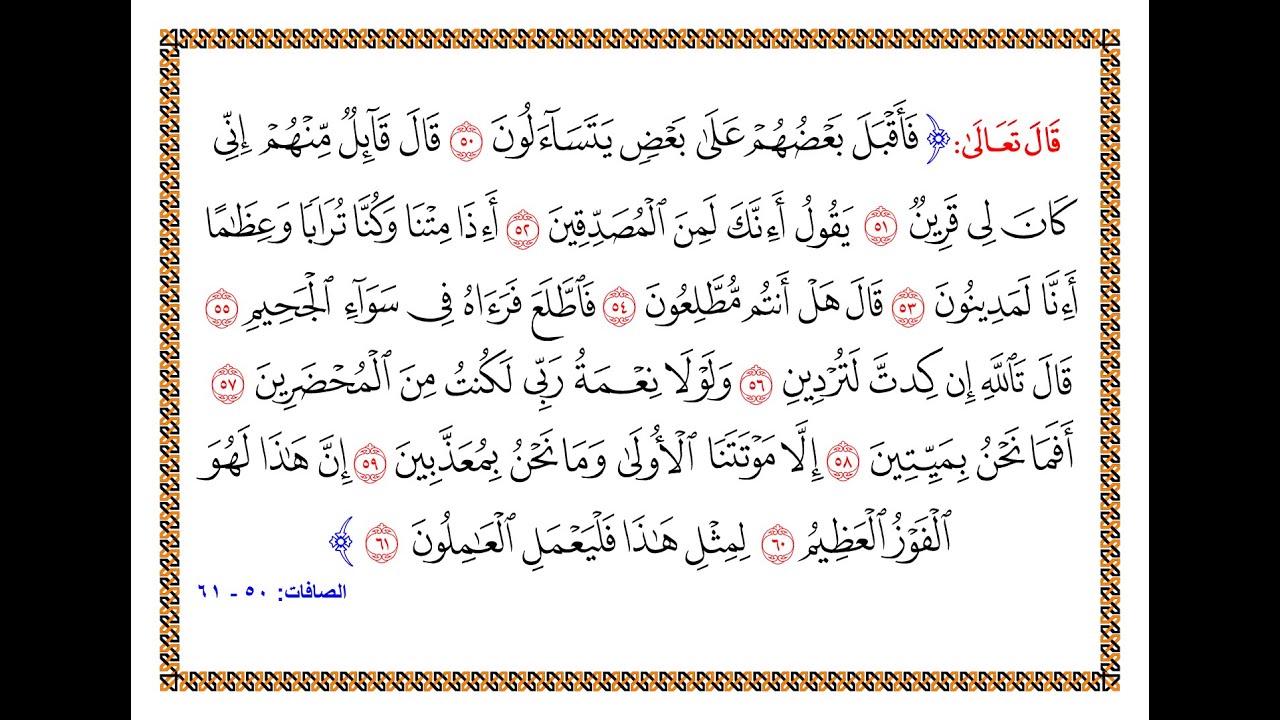 قَالَ تَعَالَىٰ: ﴿ فَأَقْبَلَ بَعْضُهُمْ عَلَىٰ بَعْضٍ يَتَسَآءَلُونَ ٥٠ قَالَ قَآئِلٌ مِّنْهُمْ إِنِّي
كَانَ لِي قَرِينٌ ٥١ يَقُولُ أَءِنَّكَ لَمِنَ ٱلْمُصَدِّقِينَ ٥٢ أَءِذَا مِتْنَا وَكُنَّا تُرَابًا وَعِظَٰمًا
أَءِنَّا لَمَدِينُونَ ٥٣ قَالَ هَلْ أَنتُم مُّطَّلِعُونَ ٥٤ فَٱطَّلَعَ فَرَءَاهُ فِي سَوَآءِ ٱلْجَحِيمِ ٥٥
قَالَ تَٱللَّهِ إِن كِدتَّ لَتُرْدِينِ ٥٦ وَلَوْلَا نِعْمَةُ رَبِّي لَكُنتُ مِنَ ٱلْمُحْضَرِينَ ٥٧
أَفَمَا نَحْنُ بِمَيِّتِينَ ٥٨ إِلَّا مَوْتَتَنَا ٱلْأُولَىٰ وَمَا نَحْنُ بِمُعَذَّبِينَ ٥٩ إِنَّ هَٰذَا لَهُوَ
ٱلْفَوْزُ ٱلْعَظِيمُ ٦٠ لِمِثْلِ هَٰذَا فَلْيَعْمَلِ ٱلْعَٰمِلُونَ ٦١ ﴾
الصافات: ٥٠ - ٦١